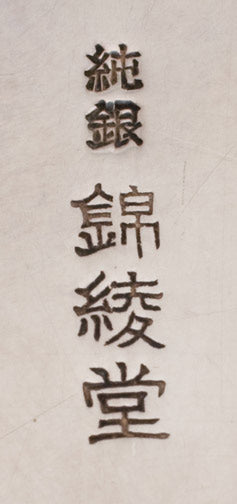 純銀
錦綾堂